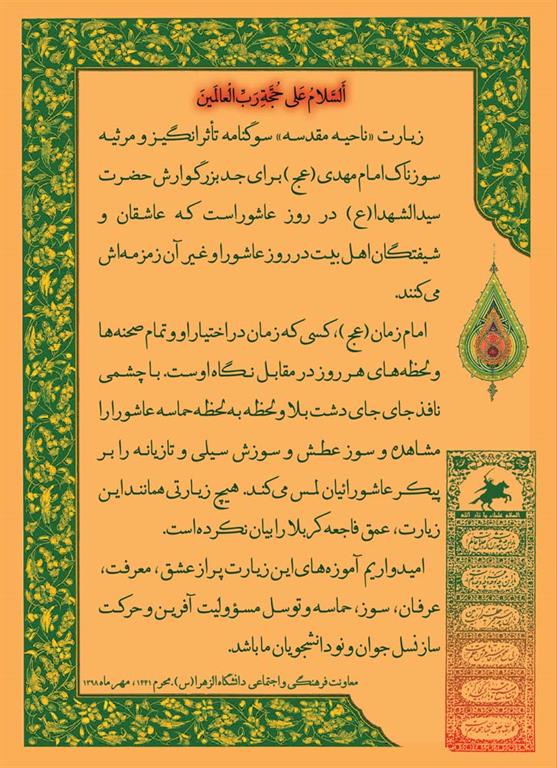 اَلسَّلامُ عَلی حُجَّةِ رَبِّ الْعالَمینَ
زیارت «ناحیه مقدسه» سوگنامه تأثرانگیز و مرثیه
سوزناک امام مهدی (عج) برای جد بزرگوارش حضرت
سیدالشهدا(ع) در روز عاشوراست که عاشقان و
شیفتگان اهل بیت در روز عاشورا و غیر آن زمزمه‌اش
می‌کنند.
امام زمان (عج)، کسی که زمان در اختیار او و تمام صحنه‌ها
و لحظه‌های هر روز در مقابل نگاه اوست. با چشمی
نافذ جای جای دشت بلا و لحظه به لحظه حماسه عاشورا را
مشاهده و سوز عطش و سوزش سیلی و تازیانه را بر
پیکر عاشورائیان لمس می‌کند. هیچ زیارتی همانند این
زیارت، عمق فاجعه کربلا را بیان نکرده است.
امیدواریم آموزه‌های این زیارت پر از عشق، معرفت،
عرفان، سوز، حماسه و توسل مسؤولیت آفرین و حرکت
ساز نسل جوان و نودانشجویان ما باشد.
معاونت فرهنگی و اجتماعی دانشگاه الزهرا(س). محرم ۱۴۴۱، مهر ماه ۱۳۹۸
السلام علیک یا ثار الله